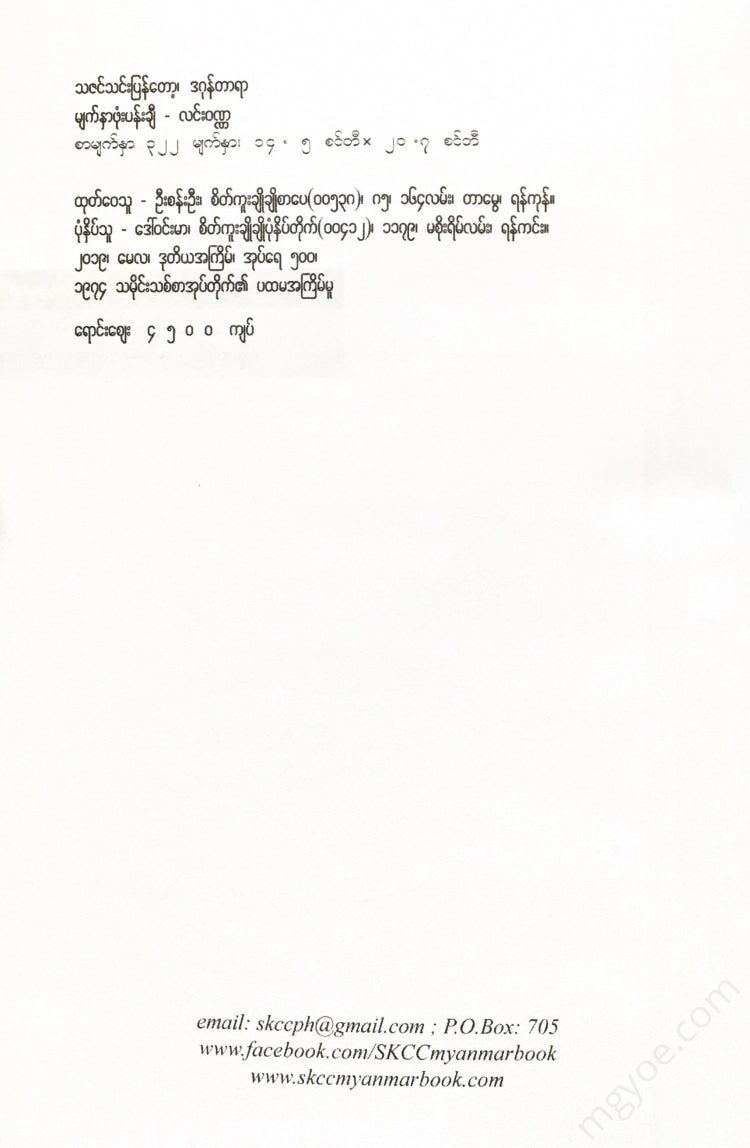 သဇင်သင်းပြန်တော့၊ ဒဂုန်တာရာ
မျက်နှာဖုံးပန်းချီ - လင်းဝဏ္ဏ
စာမျက်နှာ ၃၂၂ မျက်နှာ၊ ၁၄ . ၅ စင်တီ× ၂၀ .၇ စင်တီ
ထုတ်ဝေသူ - ဦးစန်းဦး၊ စိတ်ကူးချိုချိုစာပေ(၀၀၅၃၈)၊ ဂ၅၊ ၁၆၄လမ်း၊ တာမွေ၊ ရန်ကုန်။
ပုံနှိပ်သူ - ဒေါ်ဝင်းမာ၊ စိတ်ကူးချိုချိုပုံနှိပ်တိုက်(၀၀၄၁၂)၊ ၁၁၇၉၊ မစိုးရိမ်လမ်း၊ ရန်ကင်း။
၂၀၁၉၊ မေလ၊ ဒုတိယအကြိမ်၊ အုပ်ရေ ၅၀၀၊
၁၉၇၄ သမိုင်းသစ်စာအုပ်တိုက်၏ ပထမအကြိမ်မူ
ရောင်းဈေး ၄ ၅ ၀ ၀ ကျပ်
email: skccph@gmail.com ; P.O.Box: 705
www.facebook.com/SKCCmyanmarbook
www.skccmyanmarbook.com
mgyoe.com